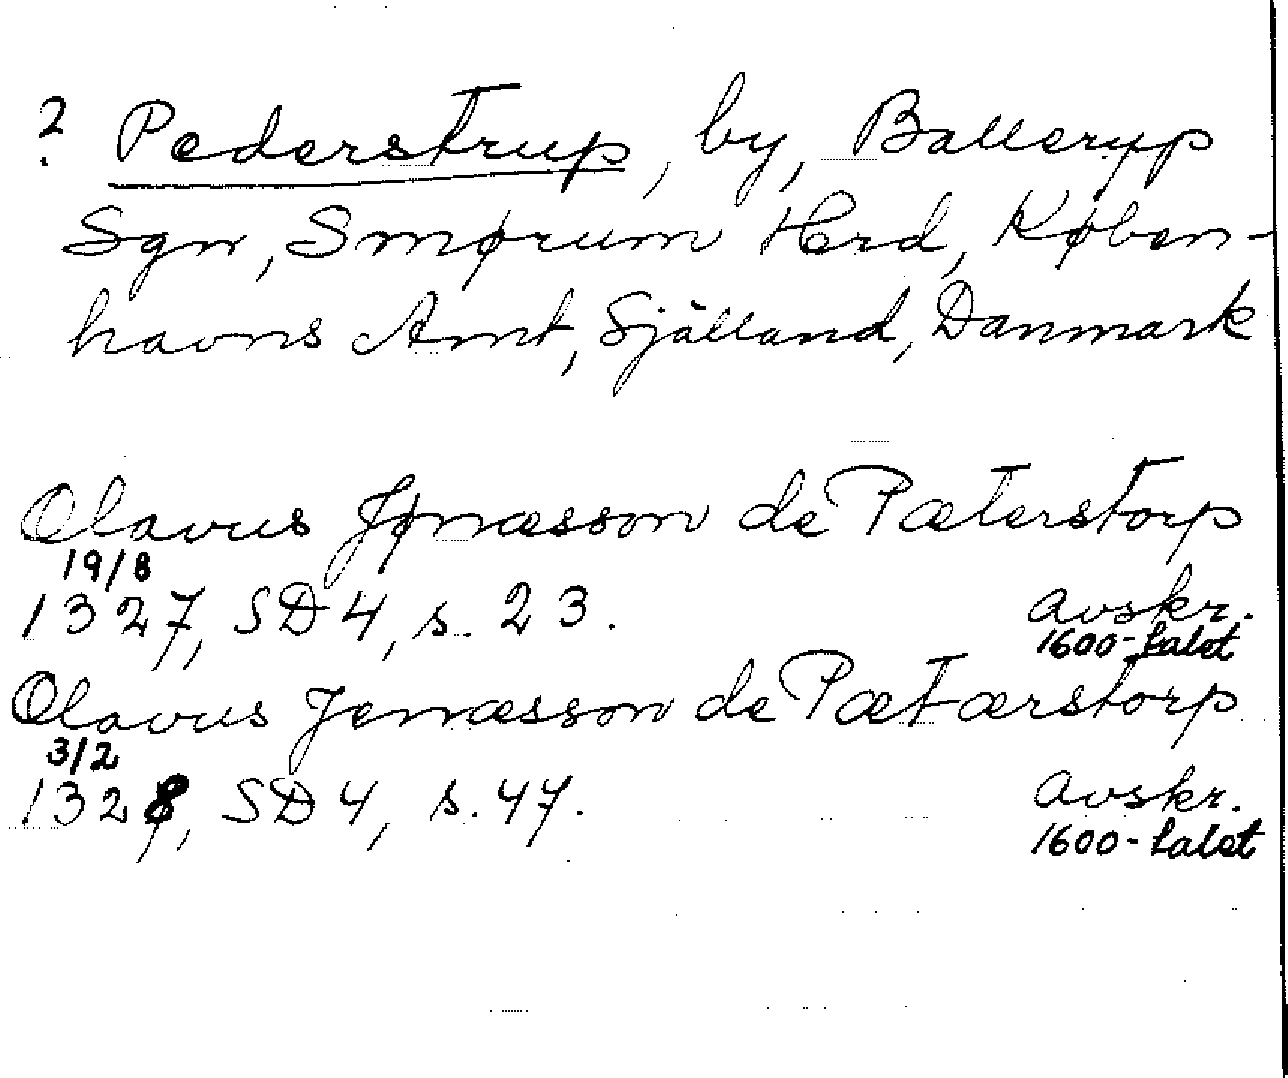 ? Pederstrup, by, Ballerup
Sgn, Smørum Herd, Køben-
havns Amt, Själland, Danmark
Olavus Jønæsson de Pæterstorp
19/8
1327, SD 4, s. 23. avskr.
1600-talet
Olavus Jenæsson de Pætærstorp
3/2
1328, SD 4, s. 47. avskr.
1600-talet